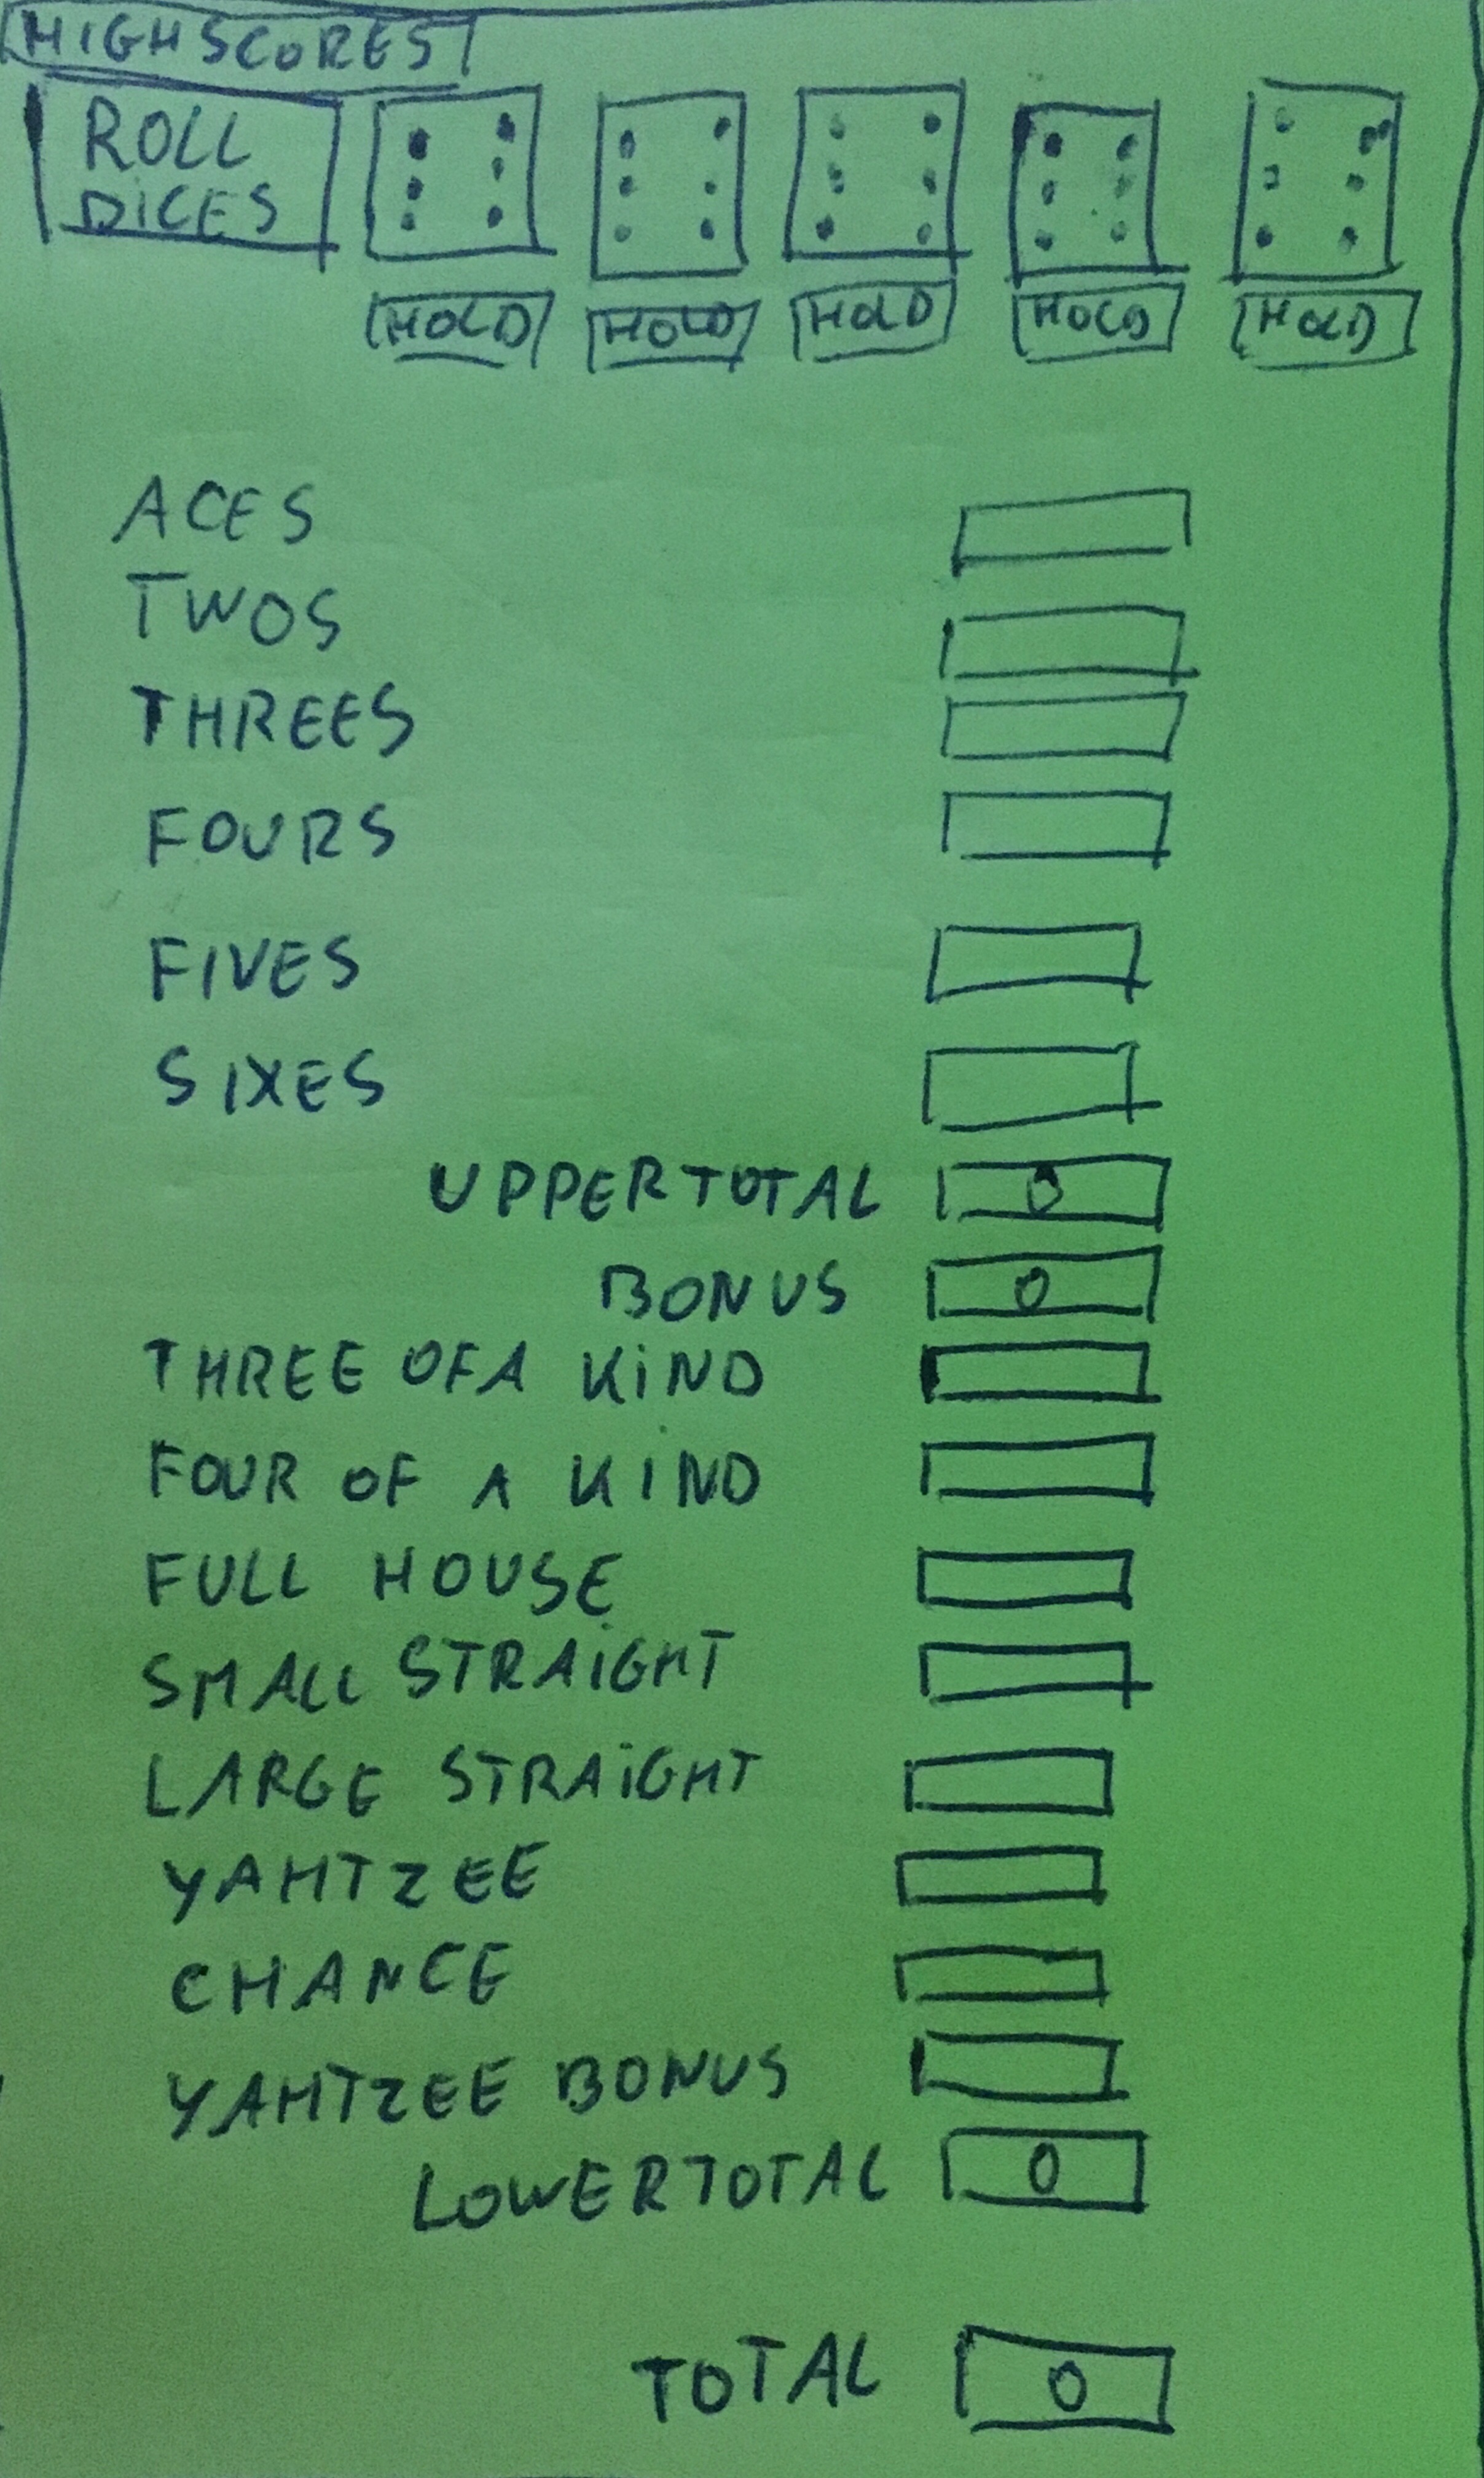 HIGHSCORES
ROLL
DICES
HOLD HOLD HOLD HOLD HOLD
ACES
TWOS
THREES
FOURS
FIVES
SIXES
UPPER TOTAL 0
BONUS 0
THREE OF A KIND
FOUR OF A KIND
FULL HOUSE
SMALL STRAIGHT
LARGE STRAIGHT
YAHTZEE
CHANCE
YAHTZEE BONUS
LOWER TOTAL 0
TOTAL 0